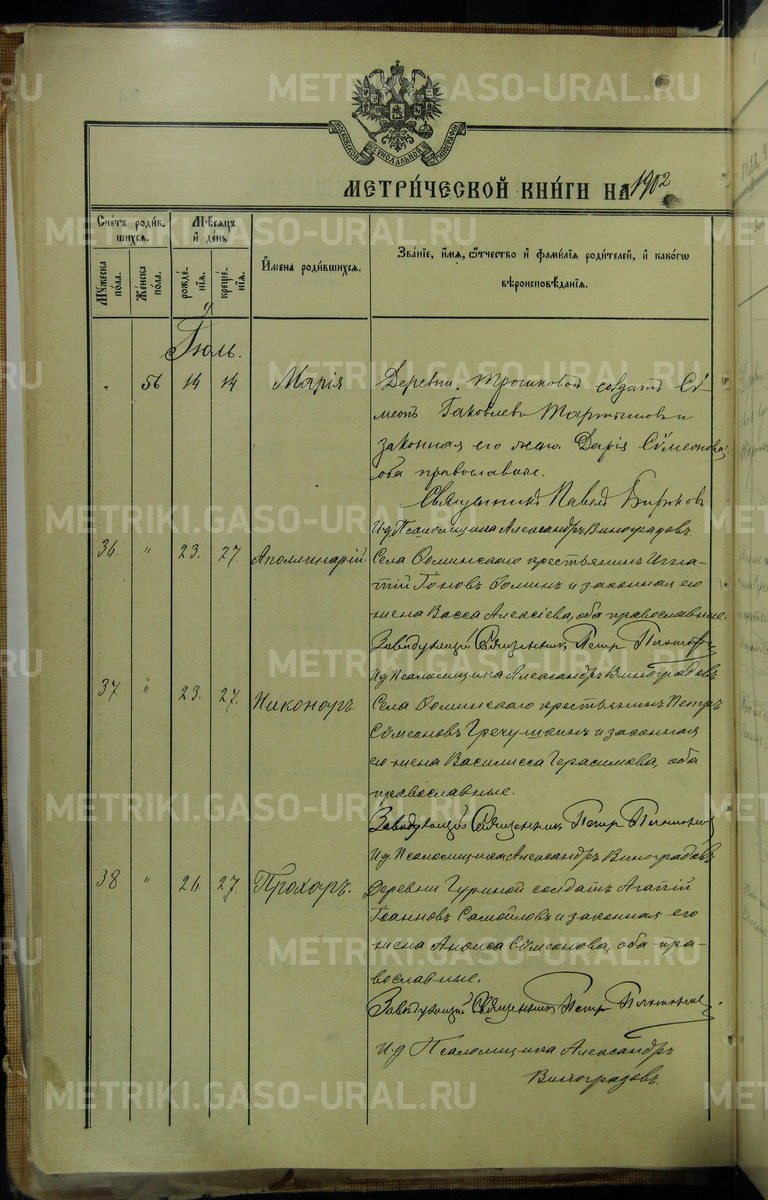 МОСКОВСКОЙ СѴНОДАЛЬНОЙ ТИПОГРАФІИ
МЕТРИ́ЧЕСКОЙ КНИ́ГИ НА 1902
Сче́тъ роди́в-
шихся.
Мѣсяцъ
и҆ де́нь
И҆мена роди́вшихся.
Зва́нїе, и҆́мя, ѻ҆́тчество и҆ фами́лїя роди́телей, и҆ како́гѡ
вѣроисповѣ́данїя.
Мꙋ́жеска
по́ла.
Же́нска
по́ла.
рожде́-
нїя.
креще́-
нїя.
Іюль.
" 56 14 14 Марія Деревни Трошковой солдатъ Сѵ-
меонъ Іаковлевъ и
законная его жена Дарія Сѵмеонова,
оба православные.
Священникъ Павелъ Бирюковъ
И.д. Псаломщика Александръ Виноградовъ
36. " 23. 27. Аполлинарій. Села Фоминскаго крестьянинъ Игна-
тій Іоновъ Фоминъ и законная его
жена Васса Алексіева, оба православные.
Завѣдующій Священникъ Петръ
И.д. Псаломщика Александръ Виноградовъ
37 " 23. 27. Никоноръ. Села Фоминскаго крестьянинъ Петръ
Сѵмеоновъ Гречушкинъ и законная
его жена Василисса Герасимова, оба
православные.
Завѣдующій Священникъ Петръ
И.д. Псаломщика Александръ Виноградовъ
38 " 26. 27. Прохоръ. Деревни Гуриной солдатъ Агапій
Іоанновъ Самойловъ и законная его
жена Анфиса Сѵмеонова, оба пра-
вославные.
Завѣдующій Священникъ Петръ
И.д. Псаломщика Александръ
Виноградовъ.
METRIKI.GASO-URAL.RU